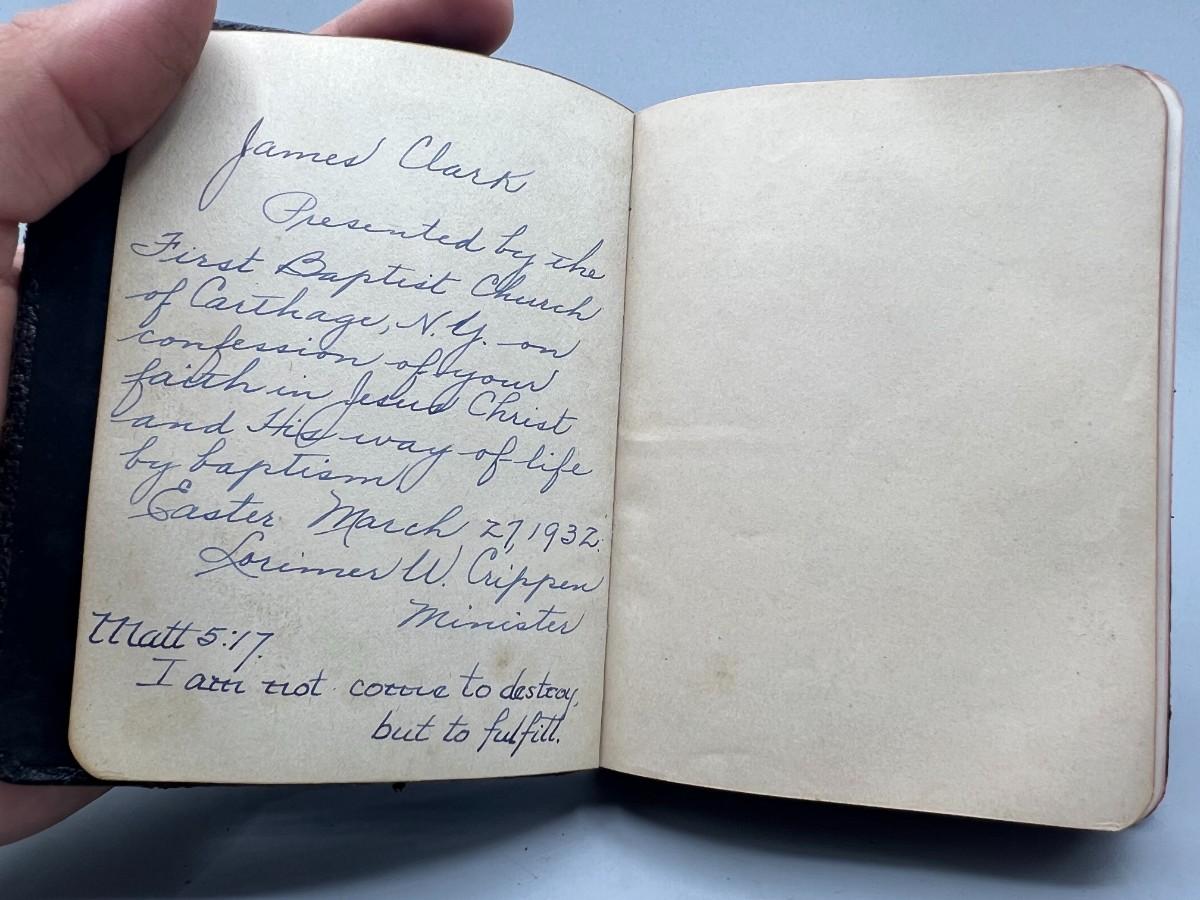 James Clark
Presented by the
First Baptist Church
of Carthage, N.Y. on
confession of your
faith in Jesus Christ
and His way of life
by baptism
Easter March 27, 1932.
Lorimer W. Crippen
Minister
Matt 5:17.
I am not come to destroy,
but to fulfill.